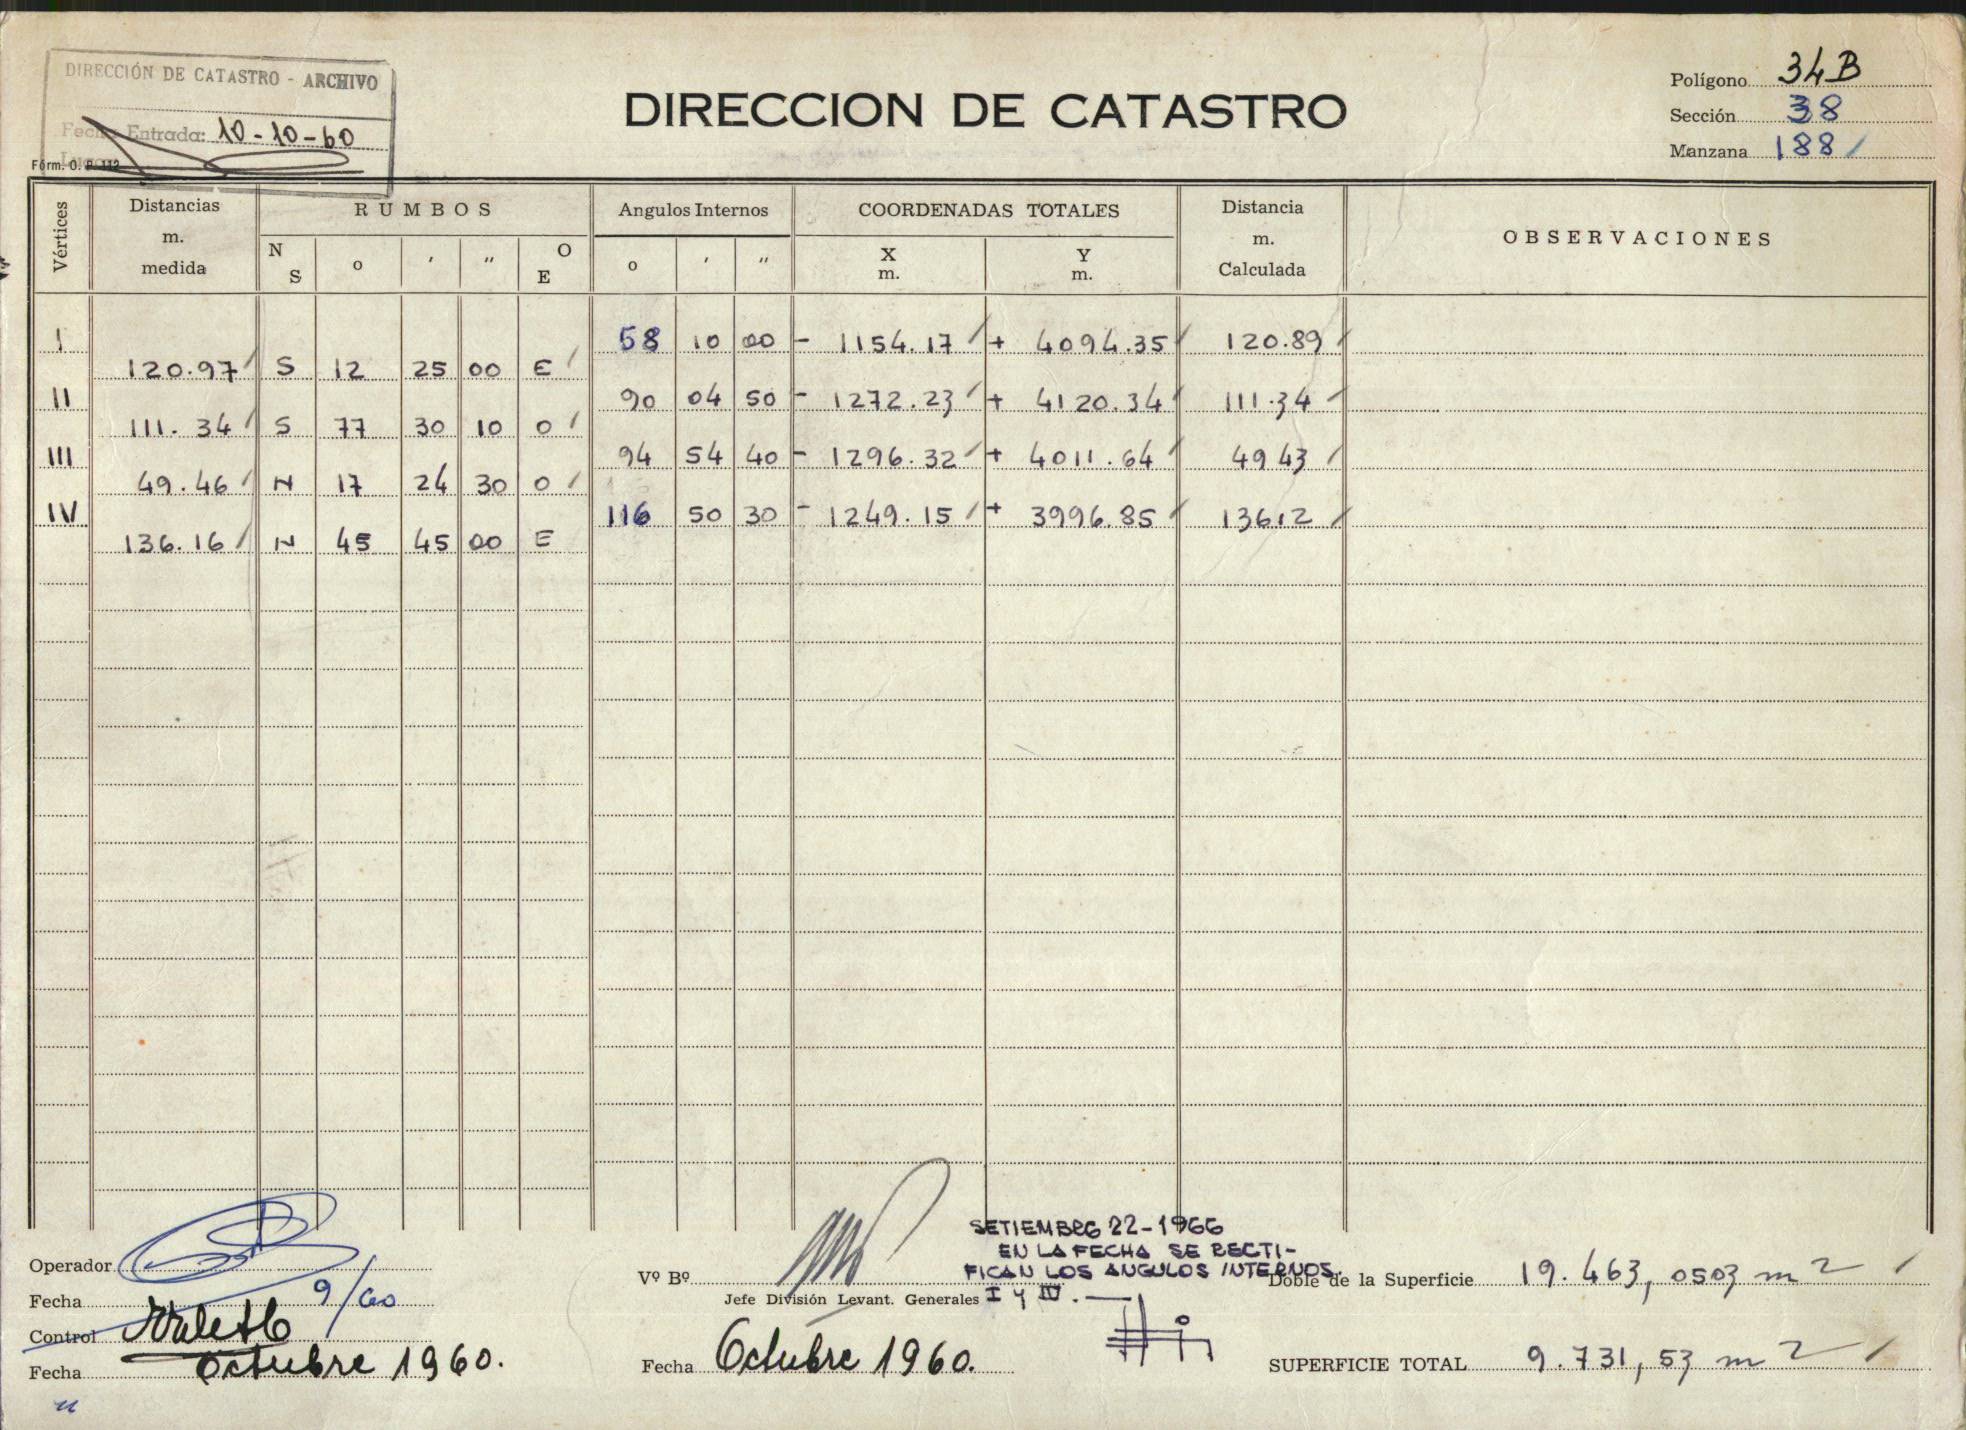 DIRECCIÓN DE CATASTRO - ARCHIVO
Fecha Entrada: 10-10-60
Form. O. P. 112
DIRECCION DE CATASTRO
Polígono 34B
Sección 38
Manzana 188
Vértices Distancias m. medida RUMBOS Angulos Internos COORDENADAS TOTALES Distancia m. Calculada OBSERVACIONES
N S o ′ ″ O E o ′ ″ X m. Y m.
I 58 10 00 - 1154.17 + 4094.35 120.89
120.97 S 12 25 00 E
II 90 04 50 - 1272.23 + 4120.34 111.34
111.34 S 77 30 10 O
III 94 54 40 - 1296.32 + 4011.64 49 43
49.46 N 17 24 30 O
IV 116 50 30 - 1249.15 + 3996.85 136.12
136.16 N 45 45 00 E
SETIEMBRE 22-1966
EN LA FECHA SE RECTI-
FICAN LOS ANGULOS INTERNOS
I Y IV. —
Operador
Fecha 9/60
Control
Fecha Octubre 1960.
Vº Bº
Jefe División Levant. Generales
Fecha Octubre 1960.
Doble de la Superficie 19.463,0503 m2
SUPERFICIE TOTAL 9.731,53 m2